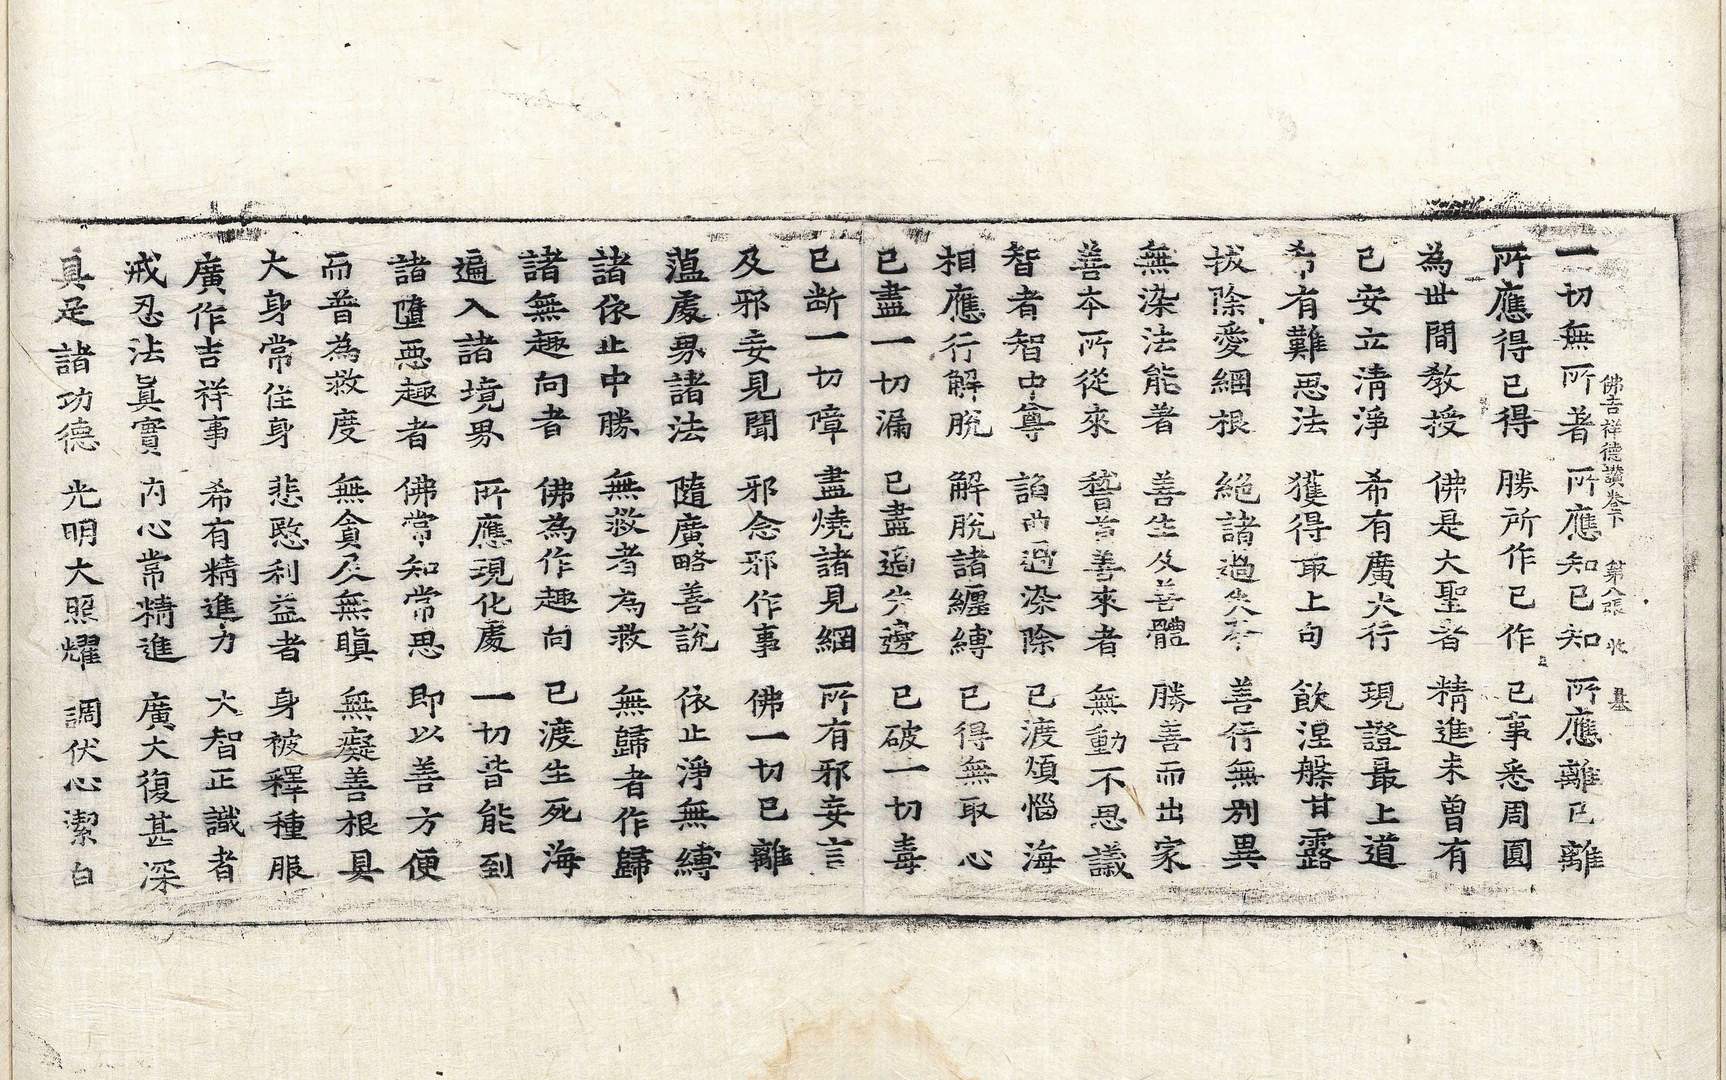 佛吉祥德讚卷下 第八張 
一切無所著 所應知已知 所應離已離
所應得已得 勝所作已作 已事悉周圓
為世間敎授 佛是大聖者 精進未曾有
已安立清淨 希有廣大行 現證最上道
希有難惡法 獲得最上句 飲涅槃甘露
拔除愛綑根 絕諸過失本 善行無別異
無染法能著 善生及善體 勝善而出家
善本所從來 稽首善來者 無動不思議
智者智中尊 諂曲過染除 已渡煩惱海
相應行解脫 解脫諸纒縛 已得無取心
已盡一切漏 已盡過失邊 已破一切毒
已斷一切障 盡燒諸見網 所有邪妄言
及邪妄見聞 邪念邪作事 佛一切已離
薀處界諸法 隨廣略善說 依止淨無縛
諸依止中勝 無救者為救 無歸者作歸
諸無趣向者 佛為作趣向 已渡生死海
遍入諸境界 所應現化處 一切皆能到
諸墮惡趣者 佛常知常思 即以善方便
而普為救度 無貪及無瞋 無癡善根具
大身常住身 悲愍利益者 身被釋種服
廣作吉祥事 希有精進力 大智正識者
戒忍法眞實 內心常精進 廣大復甚深
具足諸功德 光明大照耀 調伏心潔白